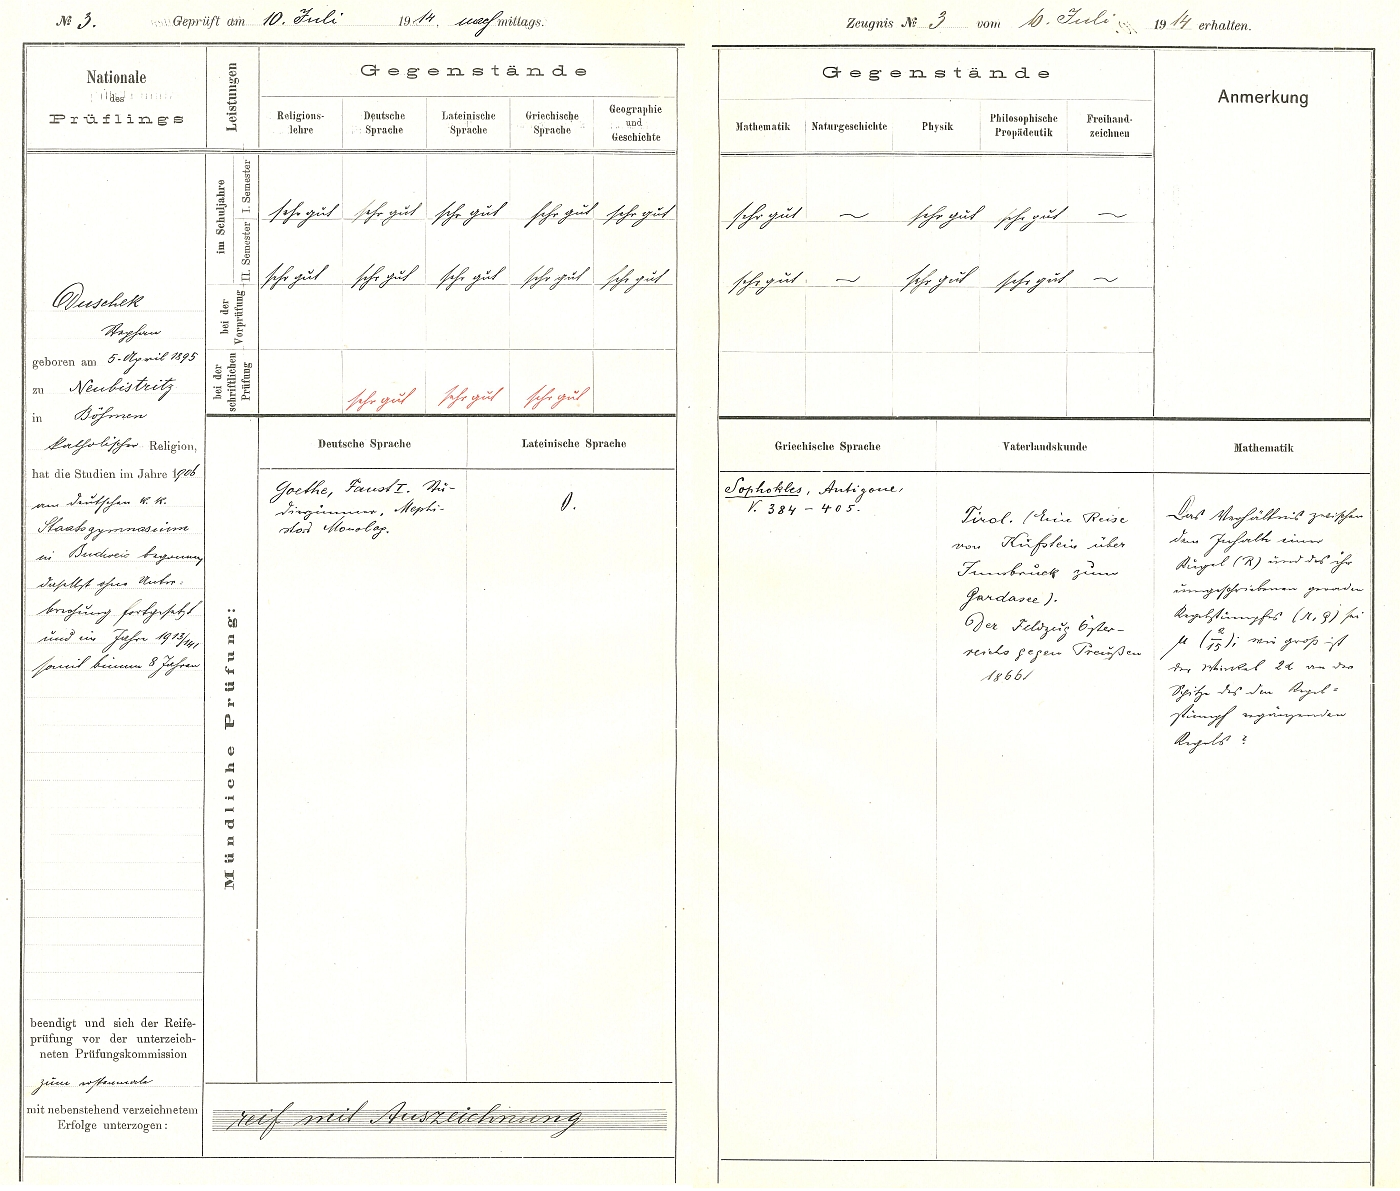 № 3. Geprüft am 10. Juli 1914, nachmittags.
Nationale
des
Prüflings
Leistungen
Gegenstände
Religions-
lehre
Deutsche
Sprache
Lateinische
Sprache
Griechische
Sprache
Geographie
und
Geschichte
im Schuljahre
I. Semester
sehr gut sehr gut sehr gut sehr gut sehr gut
II. Semester
sehr gut sehr gut sehr gut sehr gut sehr gut
bei der
Vorprüfung
bei der
schriftlichen
Prüfung
sehr gut sehr gut sehr gut
Duschek
Stephan
geboren am 5. April 1895
zu Neubistritz
in Böhmen
katholischer Religion,
hat die Studien im Jahre 1906
am deutschen k. k.
Staatsgymnasium
in Budweis begonnen,
daselbst ohne Unter-
brechung fortgesetzt
und im Jahre 1913/14,
somit binnen 8 Jahren
beendigt und sich der Reife-
prüfung vor der unterzeich-
neten Prüfungskommission
zum erstenmale
mit nebenstehend verzeichnetem
Erfolge unterzogen:
Mündliche Prüfung:
Deutsche Sprache
Goethe, Faust I. Stu-
dierzimmer, Mephi-
stos Monolog.
Lateinische Sprache
0.
reif mit Auszeichnung
Zeugnis № 3 vom 10. Juli 1914 erhalten.
Gegenstände
Anmerkung
Mathematik
Naturgeschichte
Physik
Philosophische
Propädeutik
Freihand-
zeichnen
sehr gut ~ sehr gut sehr gut ~
sehr gut ~ sehr gut sehr gut ~
Griechische Sprache
Sophokles, Antigone,
V. 384 – 405.
Vaterlandskunde
Tirol. (Eine Reise
von Kufstein über
Innsbruck zum
Gardasee).
Der Feldzug Öster-
reichs gegen Preußen
1866!
Mathematik
Das Verhältnis zwischen
dem Inhalte einer
Kugel (R) und des ihr
umgeschriebenen geraden
Kegelstumpfes (r, ρ) sei
μ; wie groß ist
der Winkel 2α an der
Spitze des den Kegel-
stumpf ergänzenden
Kegels?